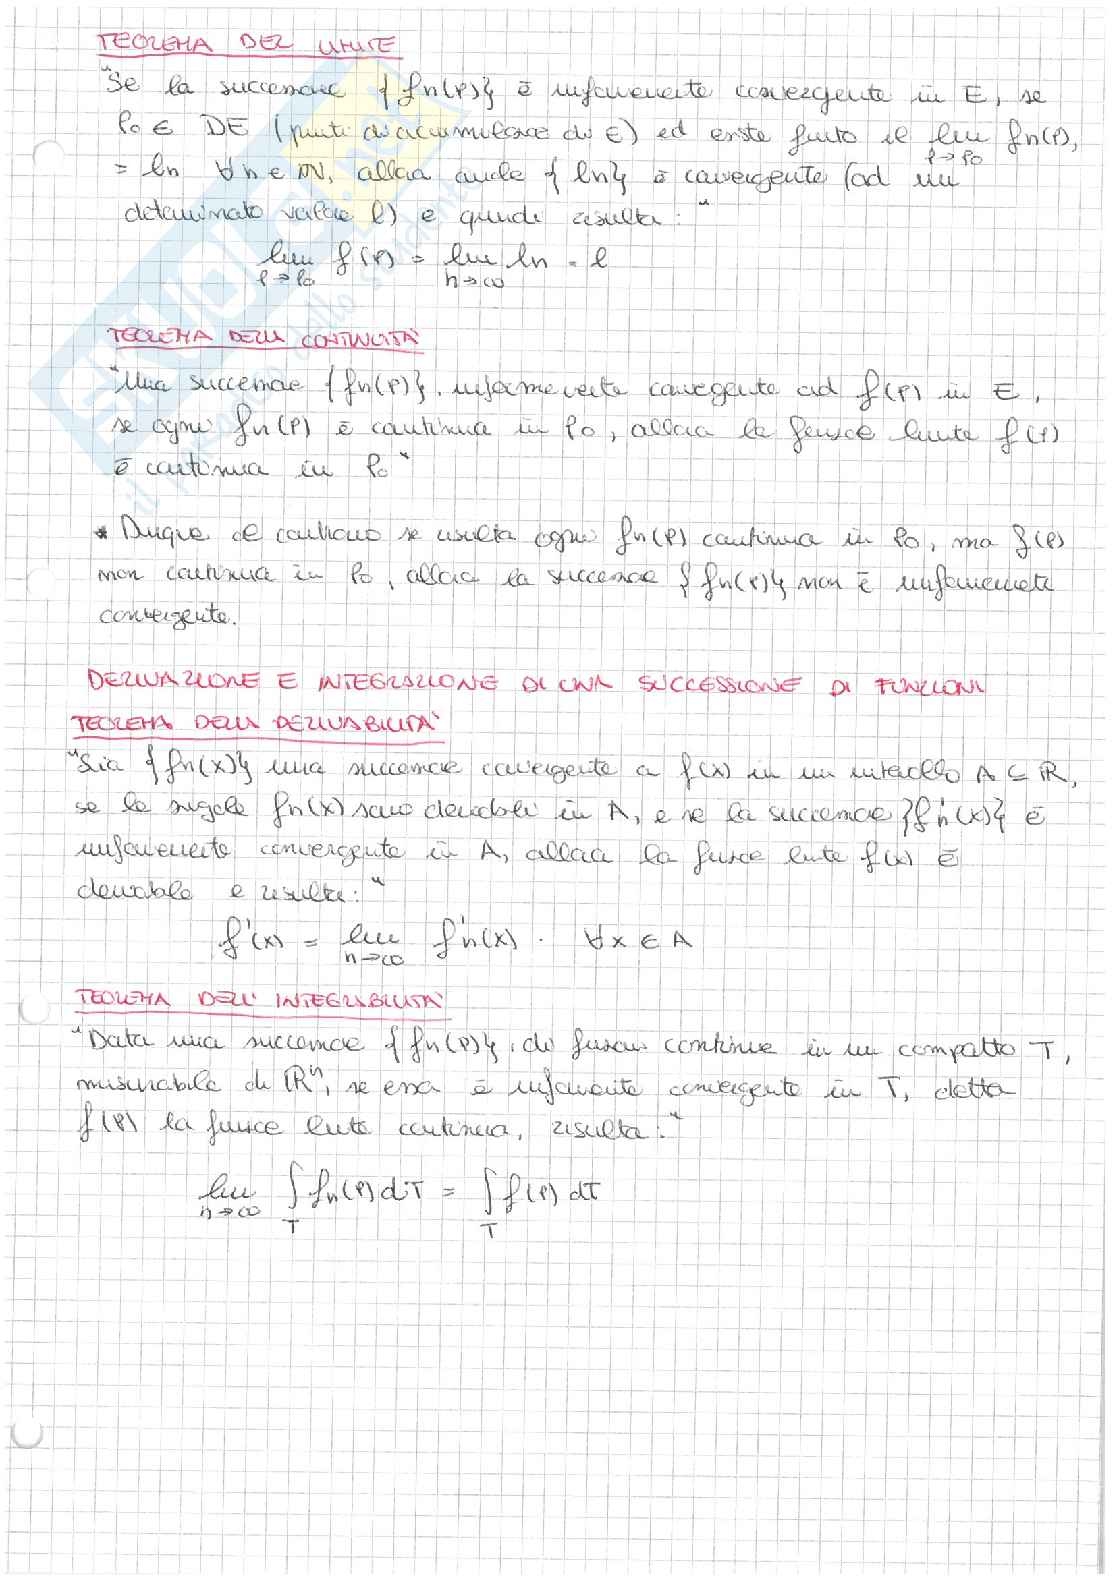 TEOREMA DEL LIMITE
"Se la successione {fn(P)} è uniformemente convergente in E, se
P₀ ∈ DE (punti di accumulazione di E) ed esiste finito il lim P→P₀ fn(P),
= ln ∀n ∈ N, allora anche {ln} è convergente (ad un
determinato valore l) e quindi risulta:"
lim P→P₀ f(P) = lim n→∞ ln = l
TEOREMA DELLA CONTINUITÀ
"Una successione {fn(P)}, uniformemente convergente ad f(P) in E,
se ogni fn(P) è continua in P₀, allora la funzione limite f(P)
è continua in P₀"
* Dunque al contrario se risulta ogni fn(P) continua in P₀, ma f(P)
non continua in P₀, allora la successione {fn(P)} non è uniformemente
convergente.
DERIVAZIONE E INTEGRAZIONE DI UNA SUCCESSIONE DI FUNZIONI
TEOREMA DELLA DERIVABILITÀ
"Sia {fn(x)} una successione convergente a f(x) in un intervallo A ⊆ R,
se le singole fn(x) sono derivabili in A, e se la successione {f'n(x)} è
uniformemente convergente in A, allora la funzione limite f(x) è
derivabile e risulta:"
f'(x) = lim n→∞ f'n(x) . ∀x ∈ A
TEOREMA DELL'INTEGRABILITÀ
"Data una successione {fn(P)}, di funzioni continue in un compatto T,
misurabile di Rⁿ, se essa è uniformemente convergente in T, detta
f(P) la funzione limite continua, risulta:"
lim n→∞ ∫T fn(P) dT = ∫T f(P) dT